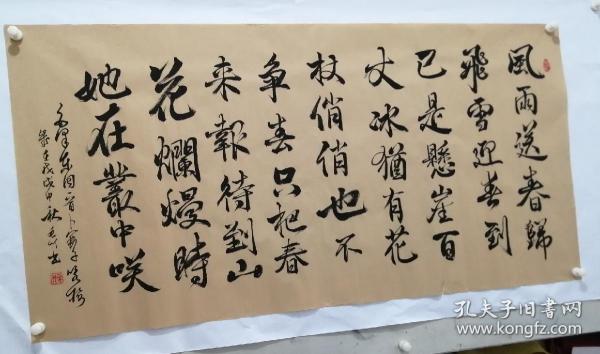 風雨送春歸
飛雪迎春到
已是懸崖百
丈冰猶有花
枝俏俏也不
争春只把春
来報待到山
花爛熳時
她在叢中咲
毛澤东词一首卜算子咏梅
孔夫子旧书网
www.kongfz.com